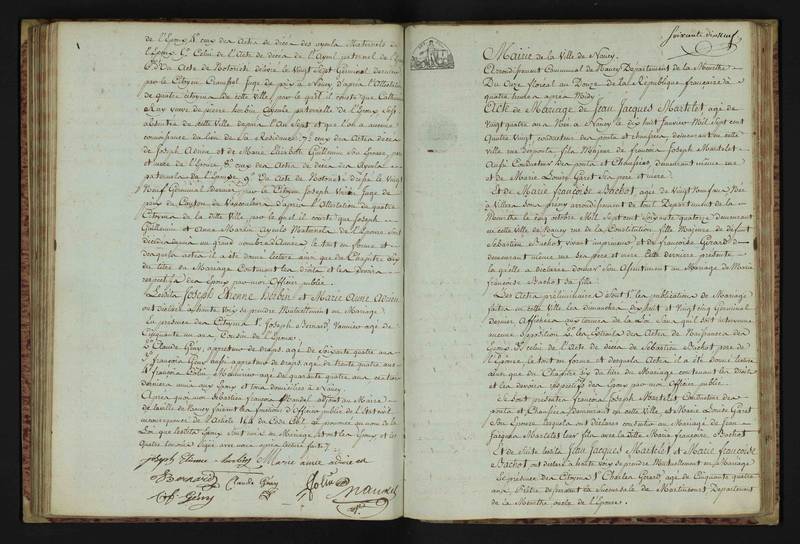 de l'Epoux 4° ceux des Actes de décès des ayeuls Maternels de
l'Epoux 5° Celui de l'Acte de décès de l'Ayeul paternel de l'Epoux
6° Un Acte de Notoriété délivré le Vingt Sept Germinal dernier
par le Citoyen Juge de paix à Nancy d'après l'Attestation
de quatre citoyens de cette Ville par lequel il conste que Catherine
veuve de pierre ayeule paternelle de l'Epoux s'est
absentée de cette Ville depuis l'An Sept et que l'on a aucune
connaissance du lieu de sa Résidence, 7° ceux des Actes de décès
de Joseph et de Marie Elisabeth Guillemin Son Epouse, père
et mère de l'Epouse 8° ceux des Actes de décès des Ayeuls
paternels de l'Epouse, 9° Un Acte de Notoriété dressé le Vingt
Neuf Germinal Dernier, par le Citoyen Joseph Juge de
paix du Canton de d'après l'Attestation de quatre
Citoyens de la dite Ville par lequel il conste que Joseph
Guillemin et Anne Martin Ayeuls Maternels de l'Epouse sont
décédés depuis un grand nombre d'années le tout en forme et
desquels actes il a été donné lecture ainsi que du Chapitre Six
du titre du Mariage Contenant les droits et les devoirs
respectifs des Epoux par moi Officier public
Lesdits Joseph Etienne et Marie Anne
ont déclaré à haute Voix se prendre Mutuellement en Mariage
En présence des Citoyens 1° Joseph Bernard, Vannier agé de
Cinquante un ans Cousin de l'Epoux
2° Claude Gény apprêteur de draps agé de Soixante quatre ans
3° François Gény aussi apprêteur de draps agé de trente quatre ans
4° François agé de quarante quatre ans ces trois
derniers amis aux Epoux et tous domiciliés à Nancy
Après quoi moi Sébastien François Mandel adjoint au Maire
de la ville de Nancy faisant les fonctions d'Officier public de l'Etat civil
en conséquence de l'Article du Code Civil ai prononcé au nom de la
Loi que lesdits Epoux sont unis en Mariage et ont les Epoux et les
Quatre témoins signé avec moi après lecture faite
joseph Etienne Marie anne
Bernard Claude Gény
Gény Mandel
Soixante dix neuf
Mairie de la Ville de Nancy
Arrondissement Communal de Nancy Département de la Meurthe
Du Onze floréal an Douze de la République française à
quatre heures après Midy
Acte de Mariage de Jean Jacques Martelet agé de
Vingt quatre ans Né à Nancy le dix huit Janvier Mil Sept cent
Quatre Vingt conducteur des ponts et chaussées, demeurant en cette
Ville rue des ponts, fils Majeur de françois Joseph Martelet
Aussi Conducteur des ponts et Chaussées, demeurant même rue
et de Marie Louise Garet Ses père et mère
Et de Marie françoise Bachot agée de Vingt Neuf ans Née
à Villers arrondissement de Toul Département de la
Meurthe le cinq octobre Mil Sept cent Soixante quatorze demeurant
en cette Ville de Nancy rue de la Constitution fille Majeure de défunt
Sébastien Bachot vivant imprimeur et de françoise Gérard
demeurant même rue Ses père et mère Cette dernière présente
laquelle a déclaré donner Son Consentement au Mariage de Marie
françoise Bachot Sa fille
Les Actes préliminaires Sont 1° les publications de Mariage
faites en cette Ville les dimanches dix huit et Vingt cinq Germinal
dernier Affichées aux termes de la Loi Sans qu'il soit intervenu
aucune opposition 2° les Extraits des Actes de Naissances des
Epoux 3° celui de l'Acte de décès de Sébastien Bachot père de
l'Epouse le tout en forme et desquels Actes il a été donné lecture
ainsi que du Chapitre Six du titre du Mariage contenant les droits
et les devoirs respectifs des Epoux par moi Officier public
Se Sont présentés françois Joseph Martelet Conducteur des
ponts et Chaussées demeurant en cette Ville, et Marie Louise Garet
Son Epouse lesquels ont déclaré consentir au Mariage de Jean
Jacques Martelet leur fils avec la dite Marie françoise Bachot
Et de Suite lesdits Jean Jacques Martelet et Marie françoise
Bachot ont déclaré à haute Voix se prendre Mutuellement en Mariage
En présence des Citoyens 1° Charles Gérard agé de Cinquante quatre
ans, Prêtre desservant la Succursale de Martincourt Département
de la Meurthe oncle de l'Epouse